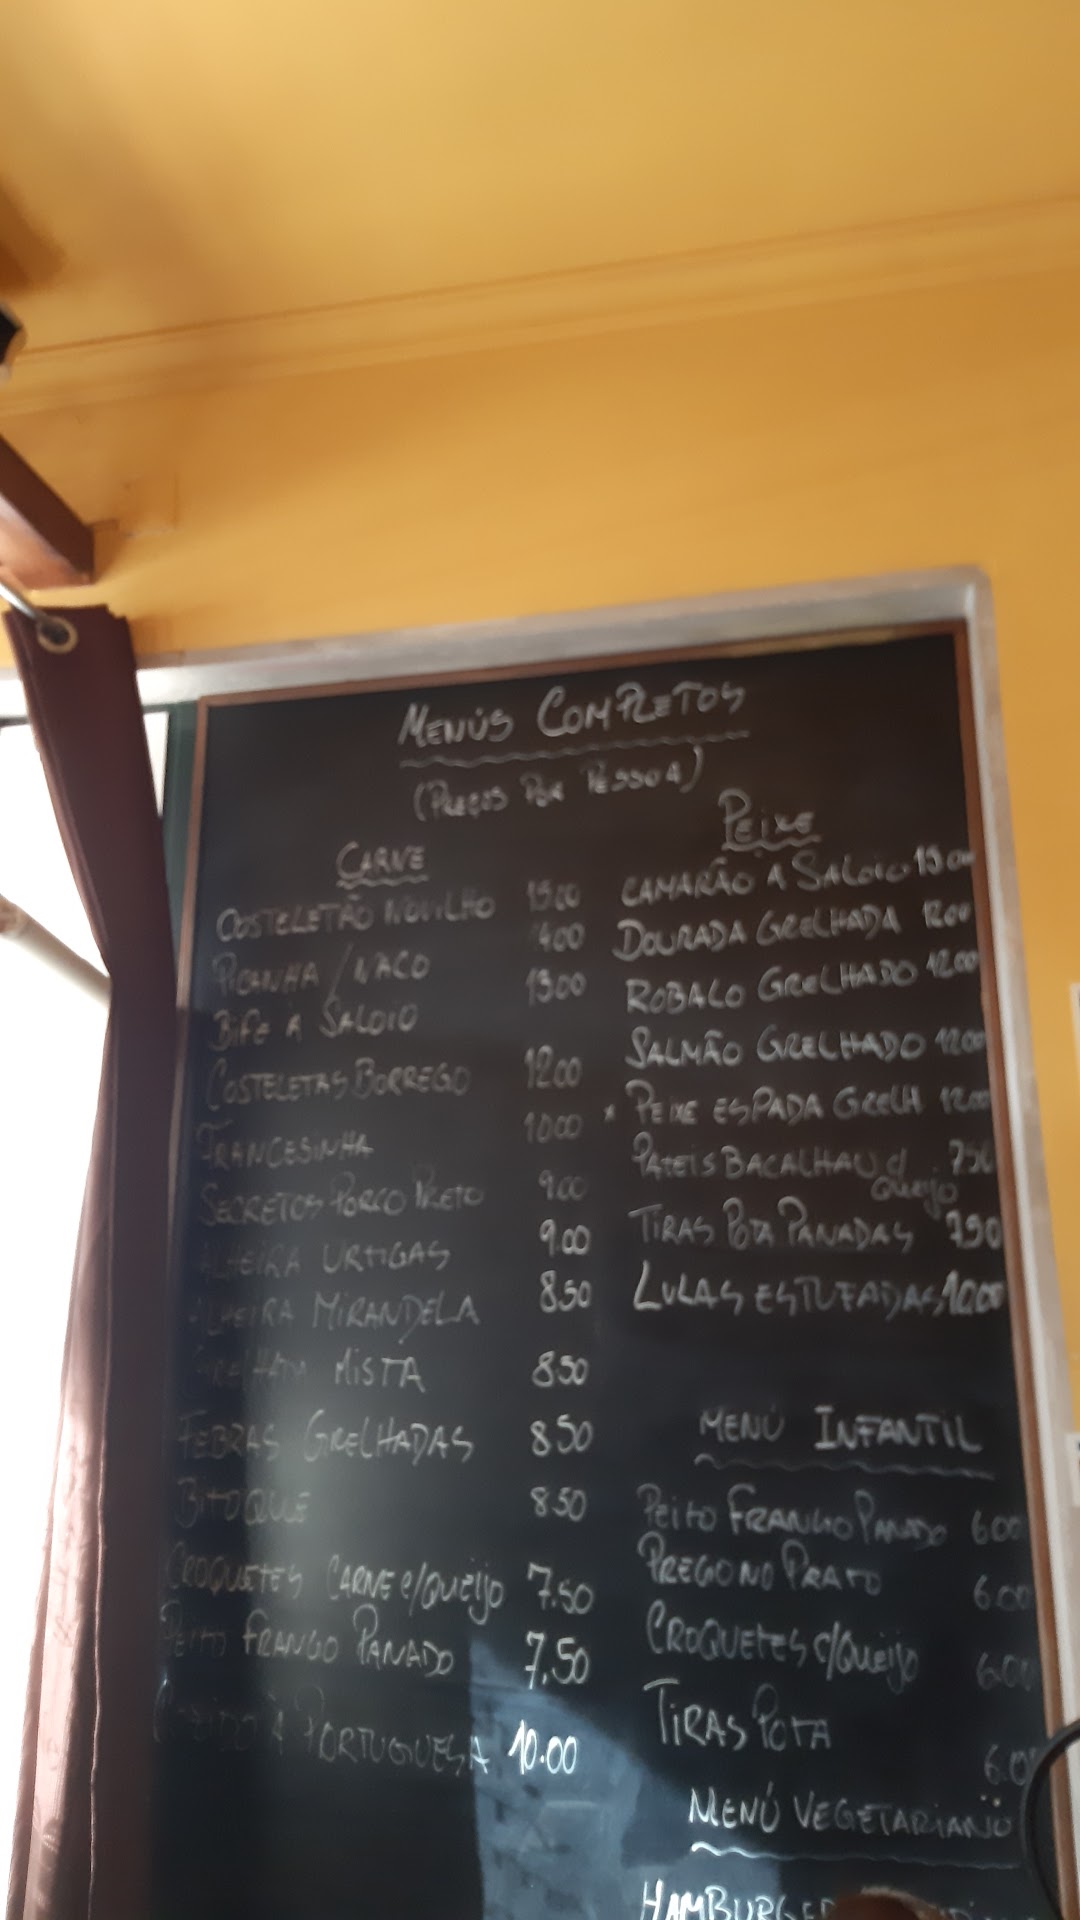 MENÚS COMPLETOS
(PREÇOS POR PESSOA)
CARNE
COSTELETÃO NOVILHO 1500
PICANHA / NACO 1400
BIFE À SALOIO 1300
COSTELETAS BORREGO 1200
FRANCESINHA 1000
SECRETOS PORCO PRETO 9.00
ALHEIRA URTIGAS 9.00
ALHEIRA MIRANDELA 8.50
GRELHADA MISTA 8.50
FEBRAS GRELHADAS 8.50
BITOQUE 8.50
CROQUETES CARNE C/QUEIJO 7.50
PEITO FRANGO PANADO 7.50
COZIDO À PORTUGUESA 10.00
PEIXE
CAMARÃO À SALOIO
DOURADA GRELHADA 1200
ROBALO GRELHADO 1200
SALMÃO GRELHADO 1200
* PEIXE ESPADA GRELH 1200
PATEIS BACALHAU C/ 750
QUEIJO
TIRAS POTA PANADAS 750
LULAS ESTUFADAS 1000
MENÚ INFANTIL
PEITO FRANGO PANADO 6.00
PREGO NO PRATO 6.00
CROQUETES C/QUEIJO 6.00
TIRAS POTA 6.00
MENÚ VEGETARIANO
HAMBURGER